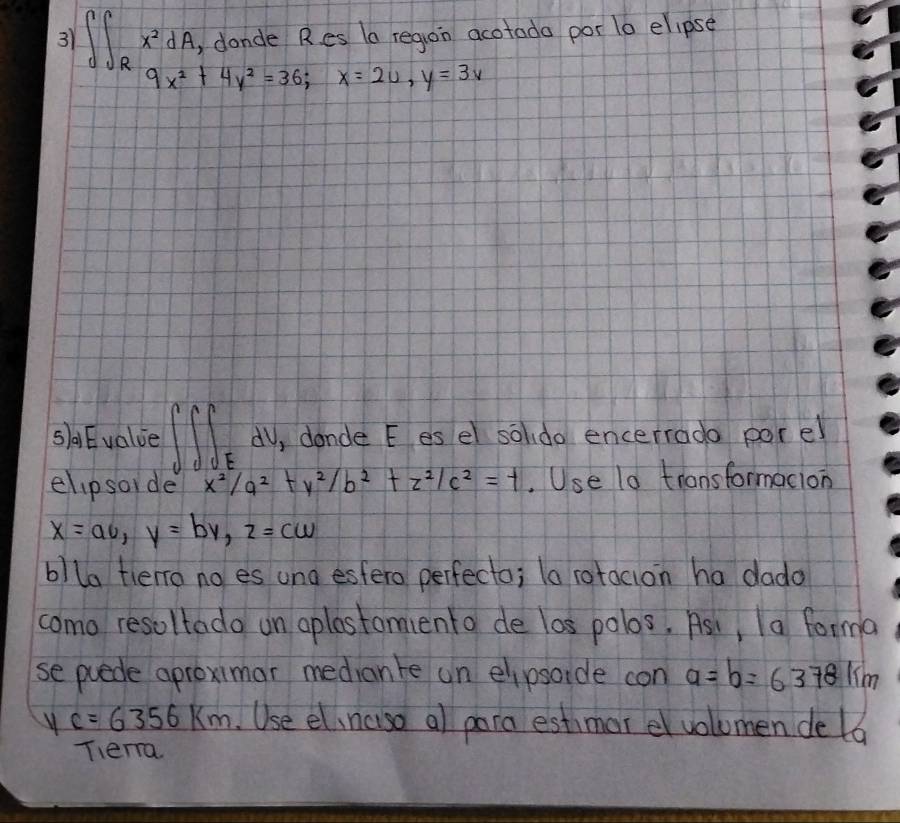 3) ∬_R x² dA, donde R es la región acotada por la elipse
9x² + 4y² = 36; x = 2u, y = 3v
5) a) Evalúe ∭_E dV, donde E es el sólido encerrado por el
elipsoide x²/a² + y²/b² + z²/c² = 1. Use la transformación
x = au, y = bv, z = cw
b) La tierra no es una esfera perfecta; la rotación ha dado
como resultado un aplastamiento de los polos. Así, la forma
se puede aproximar mediante un elipsoide con a = b = 6378 Km
y c = 6356 Km. Use el inciso a) para estimar el volumen de la
Tierra